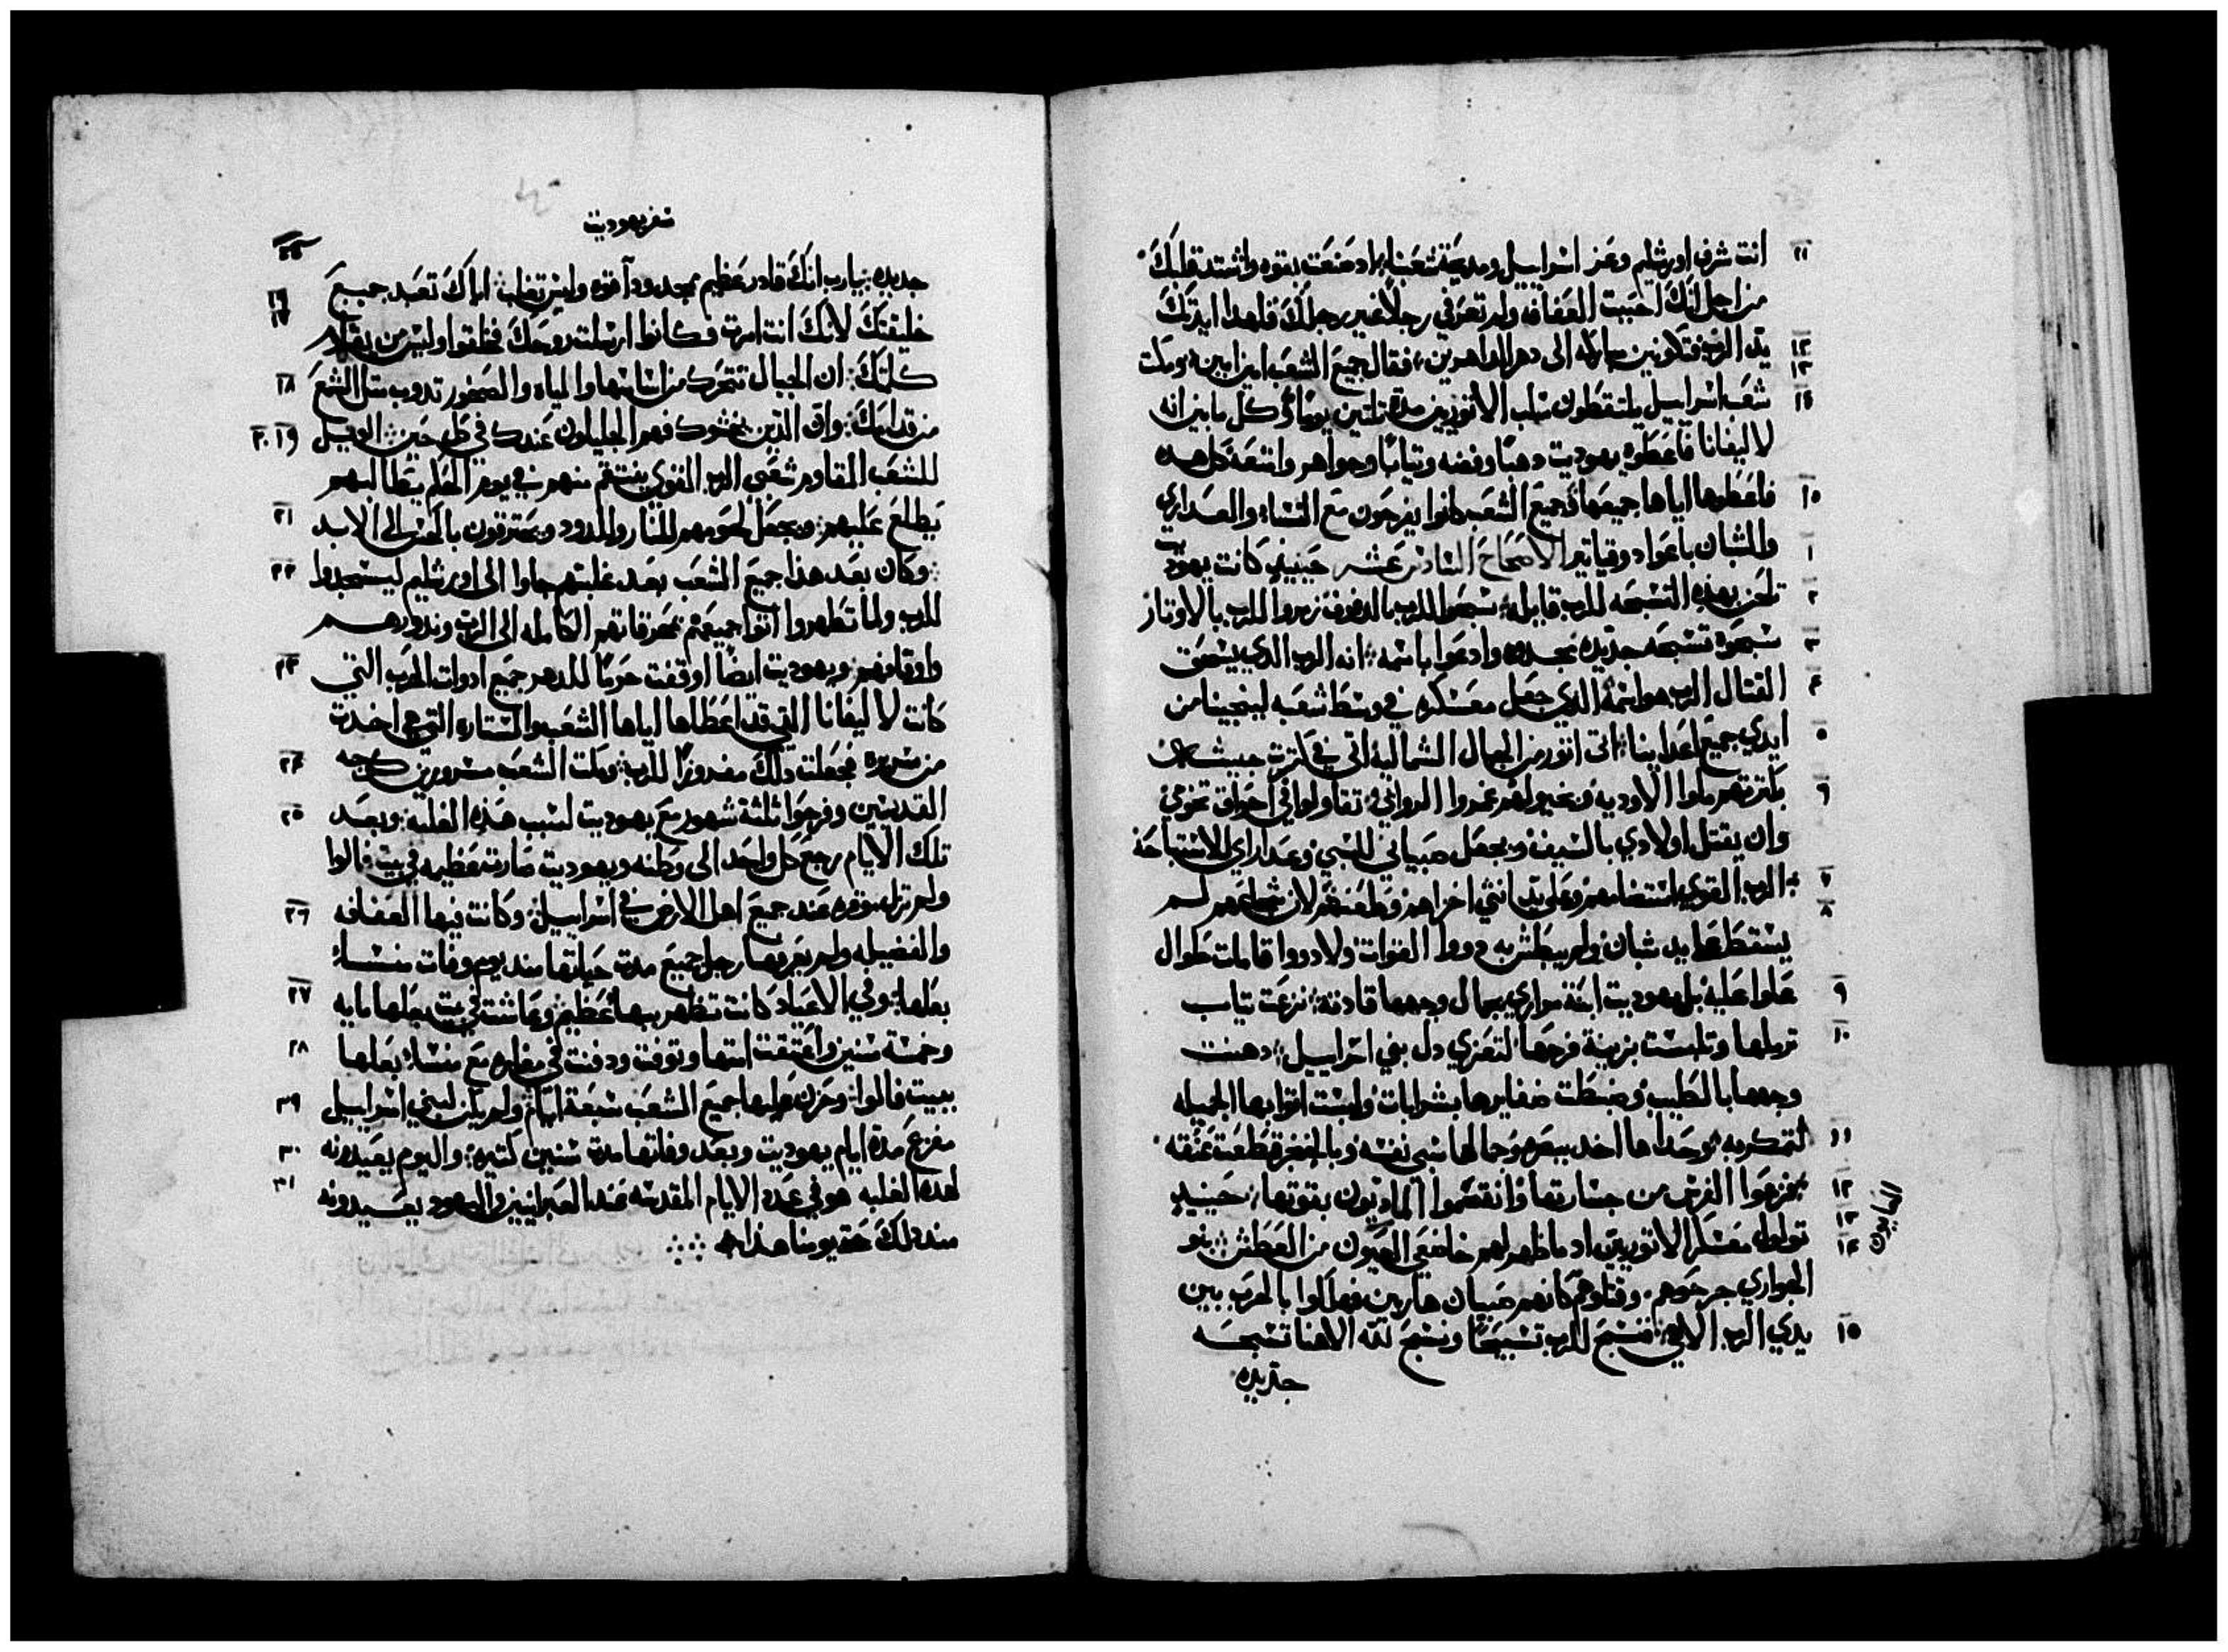 انت شرف اورشليم وعز اسراييل ومديحة شعبنا اد صنعت بقوه واشتد قلبك
من اجل انك احببت العفافه ولم تعرفي رجلاً غير رجلك فلهدا ايدتك
يد الرب فتكونين مباركه الى دهر الداهرين فقال جميع الشعب امين امين ومكت
شعب اسراييل يلتقطون سلب الاتوريين مدة تلتين يوماً وكل ما بين انه
لاليفانا فاعطوه يهوديت دهباً وفضه وتياباً وجواهر وامتعة كل هده
فاعطوها اياها جميعها وجميع الشعب كانوا يفرحون مع النساء والعداري
والشبان باعواد وقياتير الاصحاح السادس عشر حينيد كانت يهوديت
تلحن بهده التسبحه للرب قايله سبحوا للرب بالدفوف زمروا للرب بالاوتار
سبحوه تسبحه جديده مجدوه وادعوا باسمه انه الرب الدي يسحق
القتال الرب هو اسمه الدي جعل معسكره في وسط شعبه لينجينا من
ايدي جميع اعداينا اتى اتور من الجبال الشماليه اتى في كترت جيشه
كترتهم ملوا الاوديه وخيولهم غمروا الروابي تقاولوا في احراق تخومي
وان يقتل اولادي بالسيف ويجعل صبياني للسبي وعداراي للاستباحه
الرب القوي استضامهم وعلى يد انثي اخزاهم وطعنهم لان شجاعهم لم
يسقط على يد شبان ولم يبطش به دووا القوات ولا دووا قامات طوال
علوا عليه بل يهوديت ابنة مراري بجمال وجهها قادته نزعت تياب
ترملها وتلبست بزينة فرحها لتعزي دل بني اسراييل دهنت
وجهها بالطيب وضبطت ضفايرها بشرابات ولبست اتوابها الجميله
لتمكر به وحداها اخد ببصره وجمالها سبي نفسه وبالخنجر قطعت عنقه
فزعوا الفرس من جسارتها وانقسموا الماديون بقوتها حينيد
تولول معسكر الاتوريين اد ما ظهر لهم خاضعي العيون من العطش بنو
الجواري جرحوهم وقتلوهم كانهم صبيان هاربين فهلكوا بالحرب بين
يدي الرب الاهي فنسبح للرب تسبيحاً ونسبح لله الاهنا تسبحه
جديده
سفر يهوديت
جديده يارب انك قادر عظيم ممجد ود قوه وليس تغلب اياك تعبد جميع
خليقتك لانك انت امرت وكانوا ارسلت روحك فخلقوا وليس من يقاوم
كلمتك ان الجبال تتحرك من اساسها والمياه والصخور تدوب متل الشمع
من قدامك وان الدين يخشوك فهم الجليلون عندك في كل حين الويل
للشعب المقاوم شعبي الرب القوي ينتقم منهم في يوم الحكم يطالبهم
يطلع عليهم ويجعل لحومهم للنار والدود ويحترقون بالحس الى الابد
وكان بعد هذا جميع الشعب بعد غلبتهم جاوا الى اورشليم ليسجدوا
للرب ولما تطهروا اتوا جميعهم بمحرقاتهم الكامله الى الرب وندورهم
واوقافهم ويهوديت ايضاً اوقفت حرماً للدهر جميع ادوات الحرب التي
كانت لاليفانا التي قد اعطاها اياها الشعب والستاره التي هي اخدت
من سريره فجعلت دلك مفروزاً للرب ومكت الشعب مسرورين كوجه
القديسين وفرحوا ثلثة شهور مع يهوديت لسبب هذه الغلبه وبعد
تلك الايام رجع كل واحد الى وطنه ويهوديت صارت عظيمه في بيت فالوا
ولم تزل موقره عند جميع اهل الارض في اسراييل وكانت فيها العفافه
والفضيله ولم يعرفها رجل جميع مدة حياتها مند يوم وفات منسا
بعلها وفي الاعياد كانت تظهر ببهاء عظيم وعاشت في بيت بعلها مايه
وخمسة سنين واعتقت امتها وتوفت ودفنت في مغاره مع منسا بعلها
ببيت فالوا وحزن عليها جميع الشعب سبعة ايام ولم يكن لبني اسراييل
مفزع مدة ايام يهوديت وبعد وفاتها مدة سنين كتيره واليوم يعيدونه
لهده الغلبه هو في عدد الايام المقدسه عند العبرانيين واليهود يعيدونه
مند دلك حتى يومنا هذا